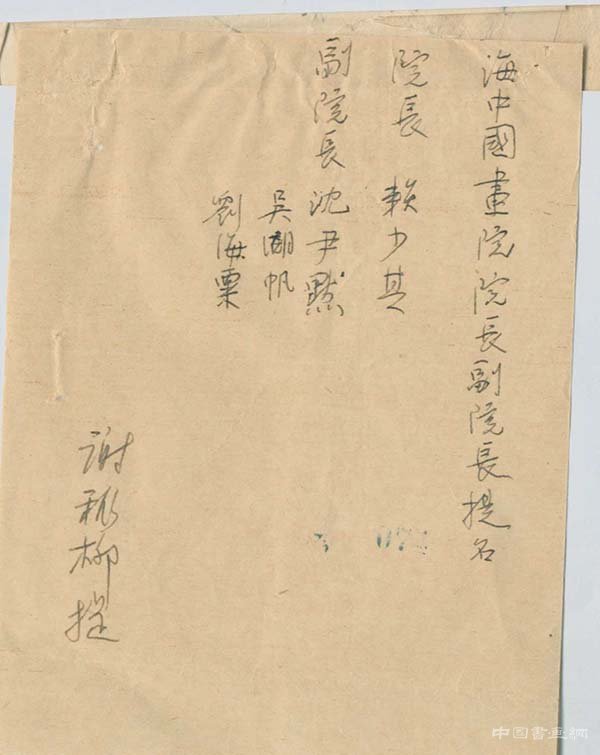 海中國畫院院長副院長提名
院長 賴少其
副院長 沈尹默
吳湖帆
劉海粟
謝稚柳提
07
中国書画網